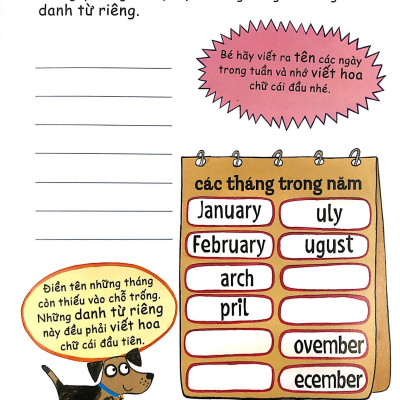 danh từ riêng.
Bé hãy viết ra tên các ngày
trong tuần và nhớ viết hoa
chữ cái đầu nhé.
các tháng trong năm
January
uly
February
ugust
arch
pril
ovember
ecember
Điền tên những tháng
còn thiếu vào chỗ trống.
Những danh từ riêng
này đều phải viết hoa
chữ cái đầu tiên.